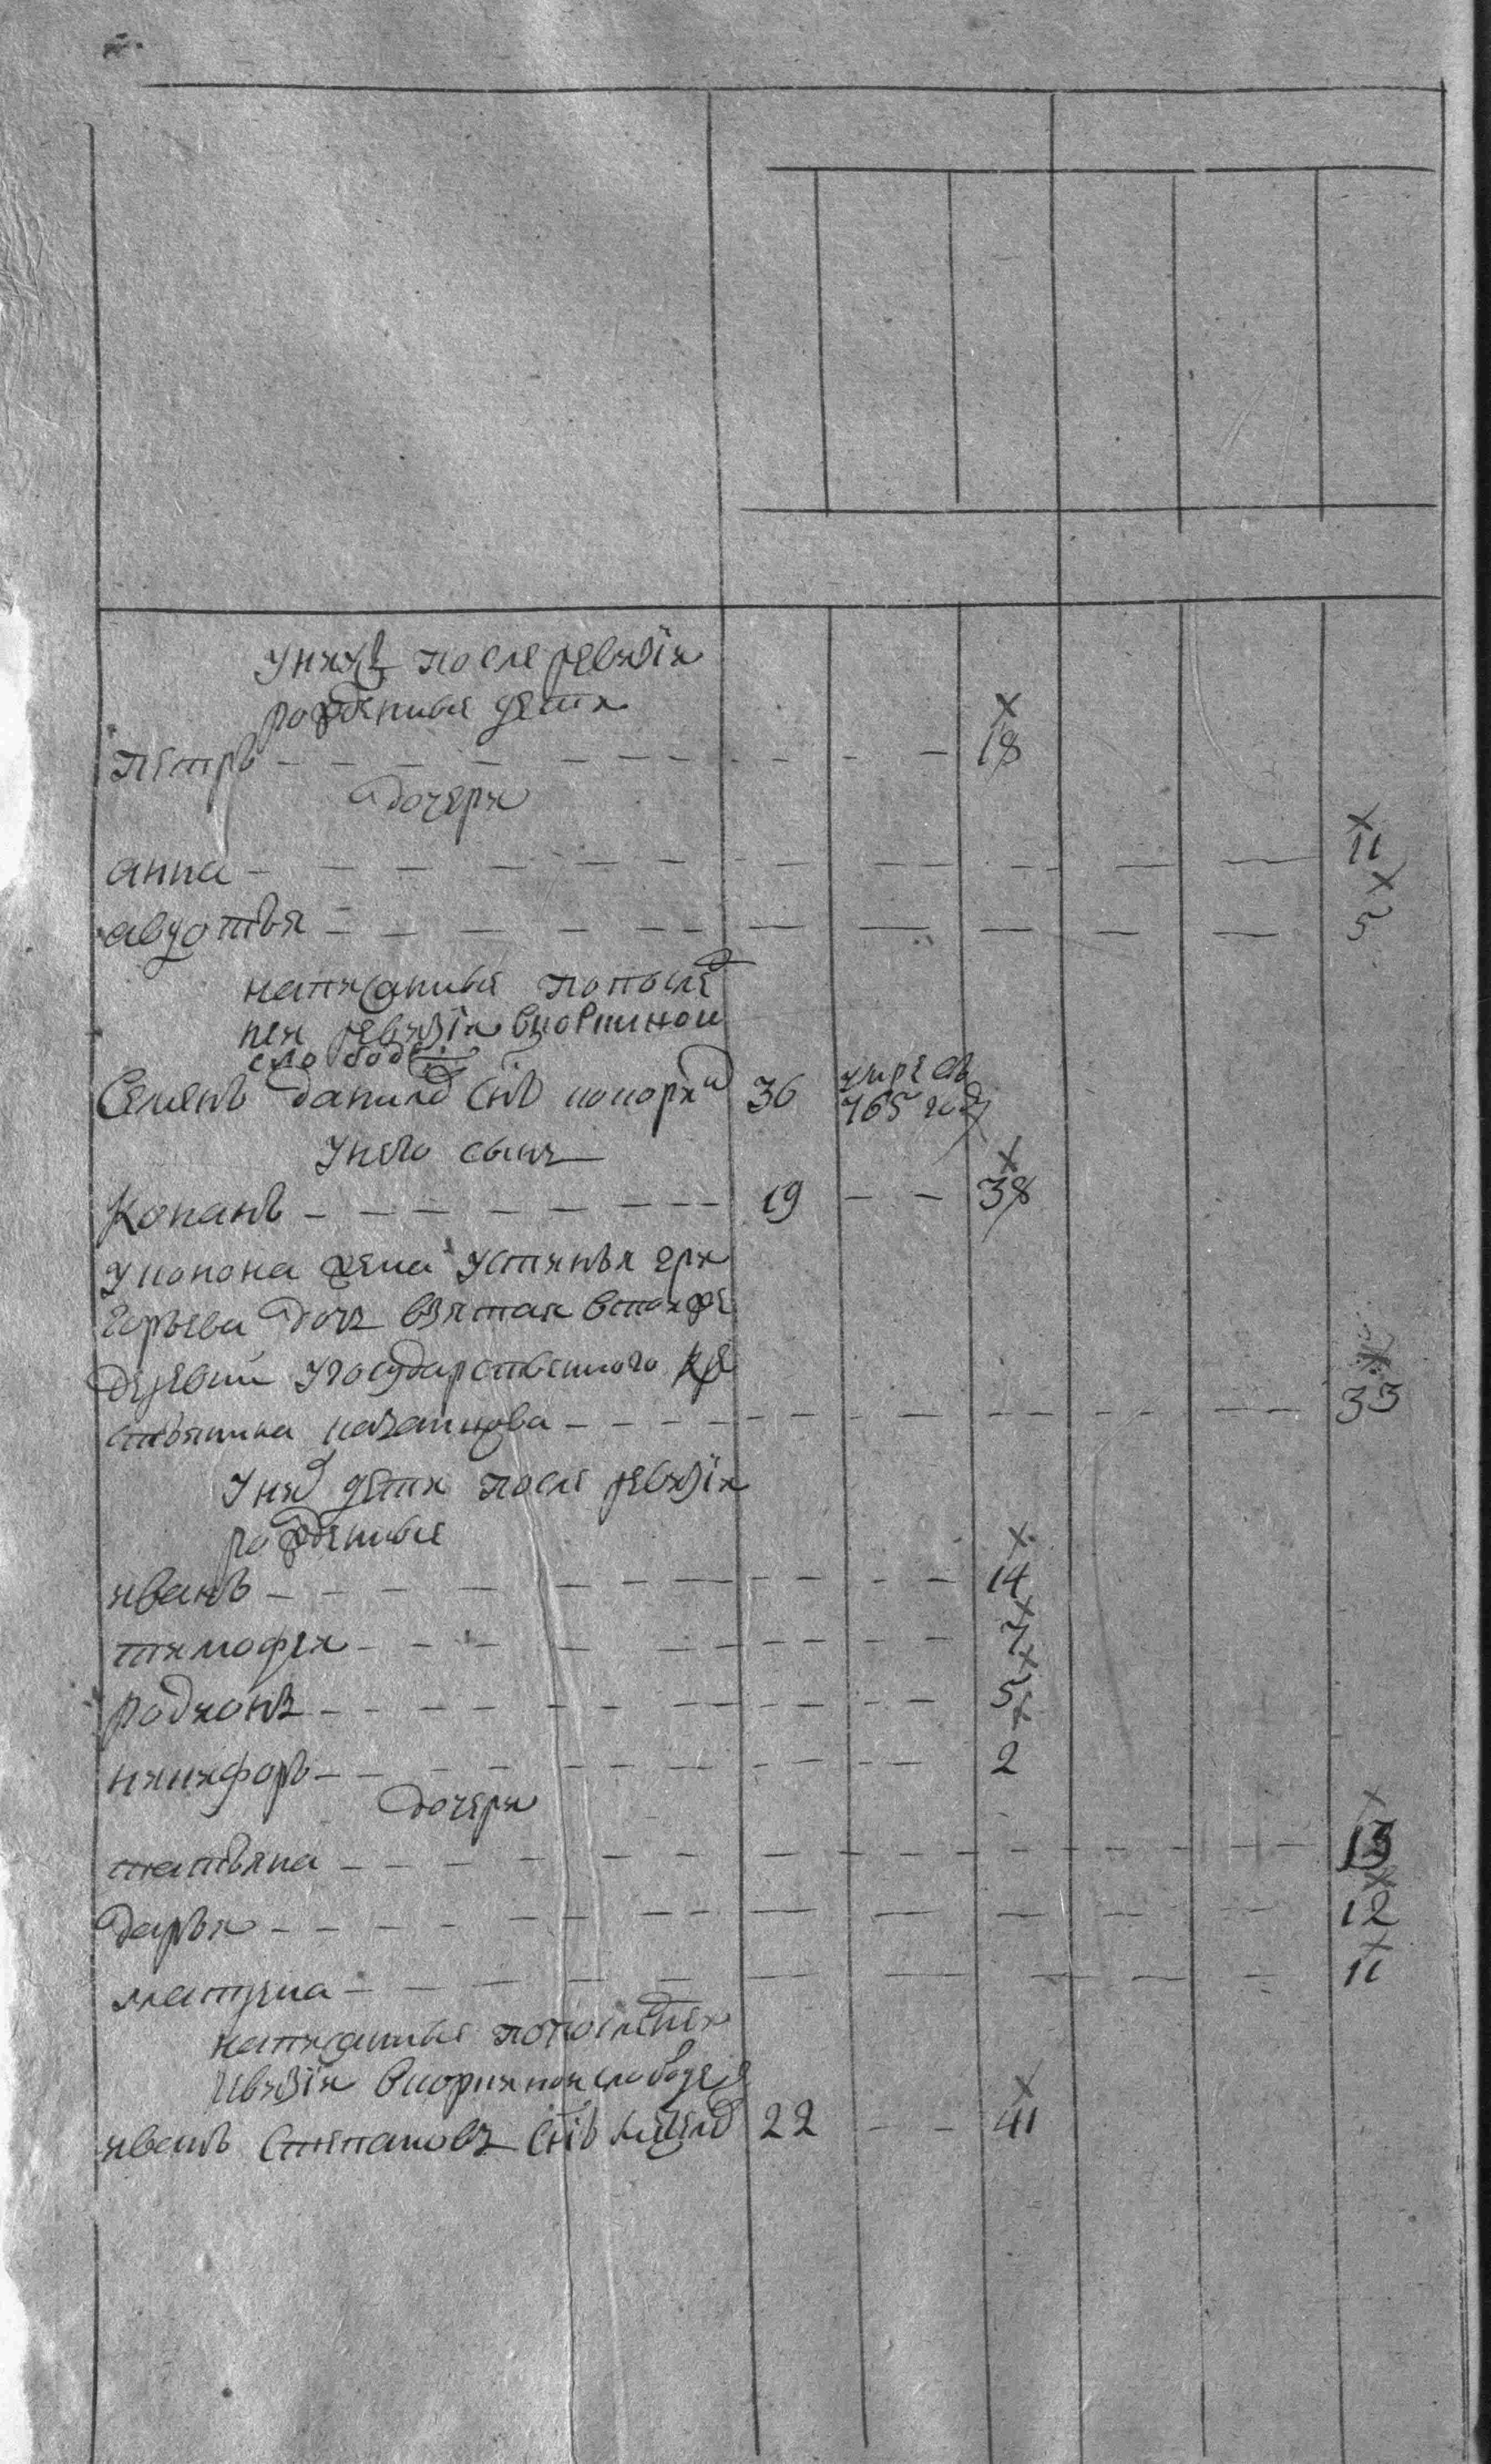 у нихъ после ревизiи
рожденные дети
петръ — — — 18
дочери
анна — — — 11
авдотья — — — 5
написанные по после
ней ревизiи в
слободе
Семенъ данилов снъ 36 умре въ
765 году
у него сынъ
Конанъ — — — 19 — — 38
у конона жена устинья гри
горьева дочь взятая в той же
деревни у государственного кре
стьянина — — — 33
у них дети после ревизiи
рожденные
иванъ — — — 14
тимофеи — — — 7
родионъ — — — 5
никифоръ — — — 2
дочери
татьяна — — — 13
дарья — — — 12
матрена — — — 11
написанные по последнеи
ревизiи в слободе
иванъ Степановъ снъ 22 — — 41